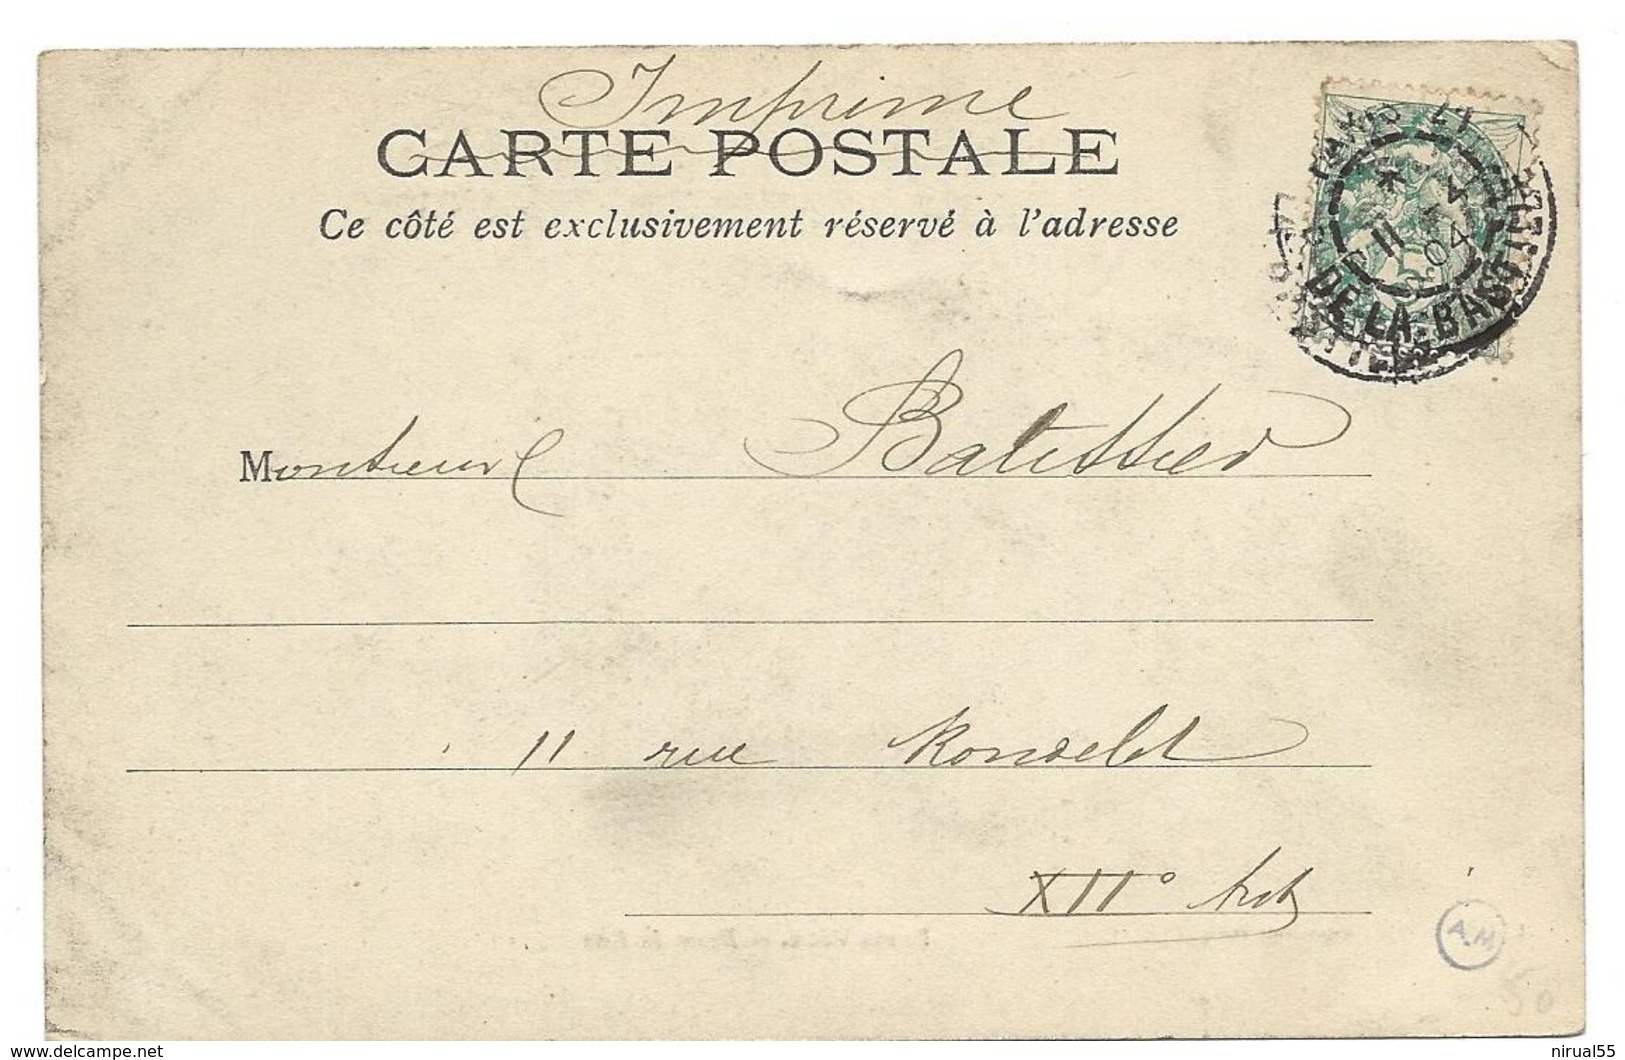 Imprimé
CARTE POSTALE
Ce côté est exclusivement réservé à l'adresse
PARIS
DE LA BASTILLE
11
04
Monsieur Batissier
11 rue Rondelet
XIIe Arrt
A.M.
50
www.delcampe.net
nirual55